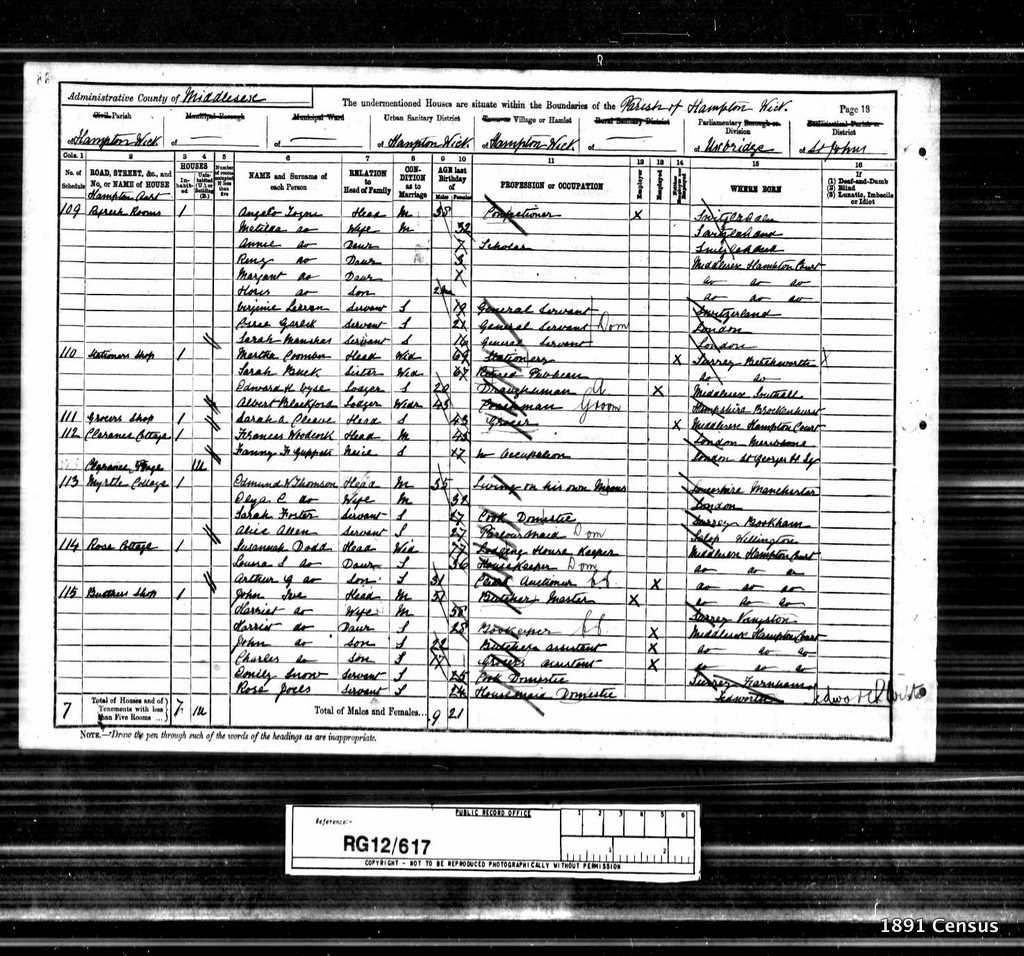 Administrative County of Middlesex
The undermentioned Houses are situate within the Boundaries of the Parish of Hampton Wick.
Page 18
Civil Parish
Municipal Borough
Municipal Ward
Urban Sanitary District
Village or Hamlet
Rural Sanitary District
Parliamentary Borough or Division
Ecclesiastical Parish or District
of Hampton Wick of of of Hampton Wick of Hampton Wick of of Uxbridge of St Johns
Cols. 1 2 3 4 5 6 7 8 9 10 11 12 13 14 15 16
No. of Schedule
ROAD, STREET, &c., and No. or NAME of HOUSE
HOUSES
Inhabited
Uninhabited (U.) or Building (B.)
Number of rooms occupied if less than five
NAME and Surname of each Person
RELATION to Head of Family
CONDITION as to Marriage
AGE last Birthday of
Males Females
PROFESSION or OCCUPATION
Employer
Employed
Neither Employer nor Employed
WHERE BORN
If
(1) Deaf-and-Dumb
(2) Blind
(3) Lunatic, Imbecile or Idiot
Hampton Court
109 Refresh Rooms 1 Angelo Head M 38 Confectioner X Switzerland
Matilda do Wife M 32 Switzerland
Annie do Daur 7 Scholar Switzerland
do Daur Middlesex Hampton Court
Margaret do Daur do do do
do Son do do do
Virginie Servant S 19 General Servant Switzerland
Servant S 21 General Servant Dom London
Sarah Servant S 16 General Servant London
110 Stationers Shop 1 Martha Coomber Head Wid 69 Stationery X Surrey Betchworth
Sarah Sister Wid 67 Retired Publican do do
Edward H Vyse Lodger S 20 Draughtsman X Middlesex Southall
Albert Blackford Lodger Widr 45 Coachman Groom Hampshire Brockenhurst
111 Grocers Shop 1 Sarah A Cleave Head S 43 Grocer X Middlesex Hampton Court
112 Clarence Cottage 1 Frances Woodcock Head M 45 London Marrebone
Fanny Niece S 17 No occupation London St George
Clarence 1U
113 Myrtle Cottage 1 Edmund W Thomson Head M 55 Living on his own Means Manchester
C do Wife M 52 London
Sarah Foster Servant S 27 Cook Domestic Surrey Bookham
Alice Allen Servant S 27 Parlourmaid Dom Salop Wellington
114 Rose Cottage 1 Susannah Dodd Head Wid 77 Lodging House Keeper Middlesex Hampton Court
Louisa S do Daur S 36 Housekeeper Dom do do do
Arthur G do Son S 31 Auctioneer X do do do
115 Butchers Shop 1 John Ive Head M 51 Butcher Master X do do do
Harriet do Wife M 58 Surrey Kingston
Harriet do Daur S 25 Bookeeper X Middlesex Hampton Court
John do Son S 22 Butchers assistant X do do do
Charles do Son S 17 Grocers assistant X do do do
Emily Snow Servant S 25 Cook Domestic Surrey Farnham
Rose Servant S 24 Housemaid Domestic
7
Total of Houses and of Tenements with less than Five Rooms 7 1U
Total of Males and Females... 9 21
NOTE.—Draw the pen through such of the words of the headings as are inappropriate.
PUBLIC RECORD OFFICE
Reference:-
RG12/617
1 2 3 4 5 6
1 2
COPYRIGHT - NOT TO BE REPRODUCED PHOTOGRAPHICALLY WITHOUT PERMISSION
1891 Census